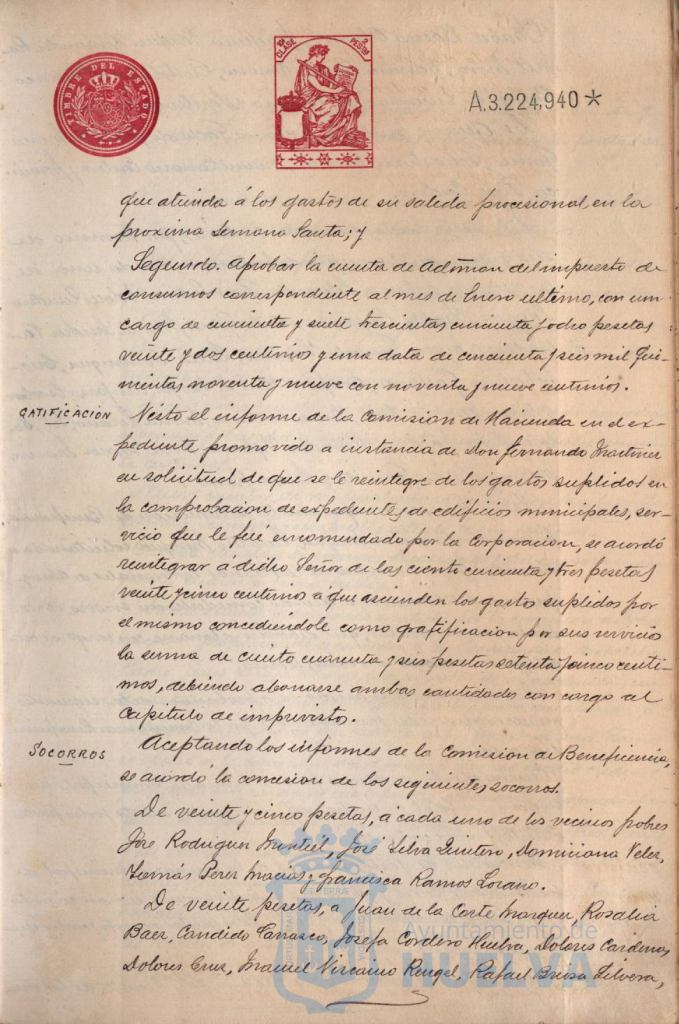 TIMBRE DEL ESTADO
10ª CLASE
2 PESTAS
A.3.224,940*
que atienda á los gastos de su salida procesional, en la
proxima Semana Santa; y
Segundo. Aprobar la cuenta de Admon del impuesto de
consumos correspondiente al mes de Enero ultimo, con un
cargo de cincuenta y siete trescientas cincuenta y ocho pesetas
veinte y dos centimos y una data de cincuenta y seis mil qui-
nientas noventa y nueve con noventa y nueve centimos.
GATIFICACIÓN
Visto el informe de la Comision de Hacienda en el ex-
pediente promovido a instancia de Don Fernando Martinez
en solicitud de que se le reintegre de los gastos suplidos en
la comprobacion de expedientes de edificios municipales, ser-
vicio que le fué encomendado por la Corporacion, se acordó
reintegrar á dicho Señor de las ciento cincuenta y tres pesetas
veinte y cinco centimos á que ascienden los gastos suplidos por
el mismo concediendole como gratificacion por sus servicio
la suma de ciento cuarenta y seis pesetas setenta y cinco centi-
mos, debiendo abonarse ambas cantidades con cargo al
capitulo de imprevistos.
SOCORROS
Aceptando los informes de la Comision de Beneficencia,
se acordó la concesion de los siguientes socorros.
De veinte y cinco pesetas, á cada uno de los vecinos pobres
José Rodriguez Montiel, José Silva Quintero, Domiciana Velez,
Tomás Perez Macias y Francisca Ramos Lozano.
De veinte pesetas, a Juan de la Corte Marquez, Rosalia
Baez, Candido Carrasco, Josefa Cordero Huelva, Dolores Cardenas,
Dolores Cruz, Manuel Vizcaino Rengel, Rafael Silvera,
Ayuntamiento de
HUELVA